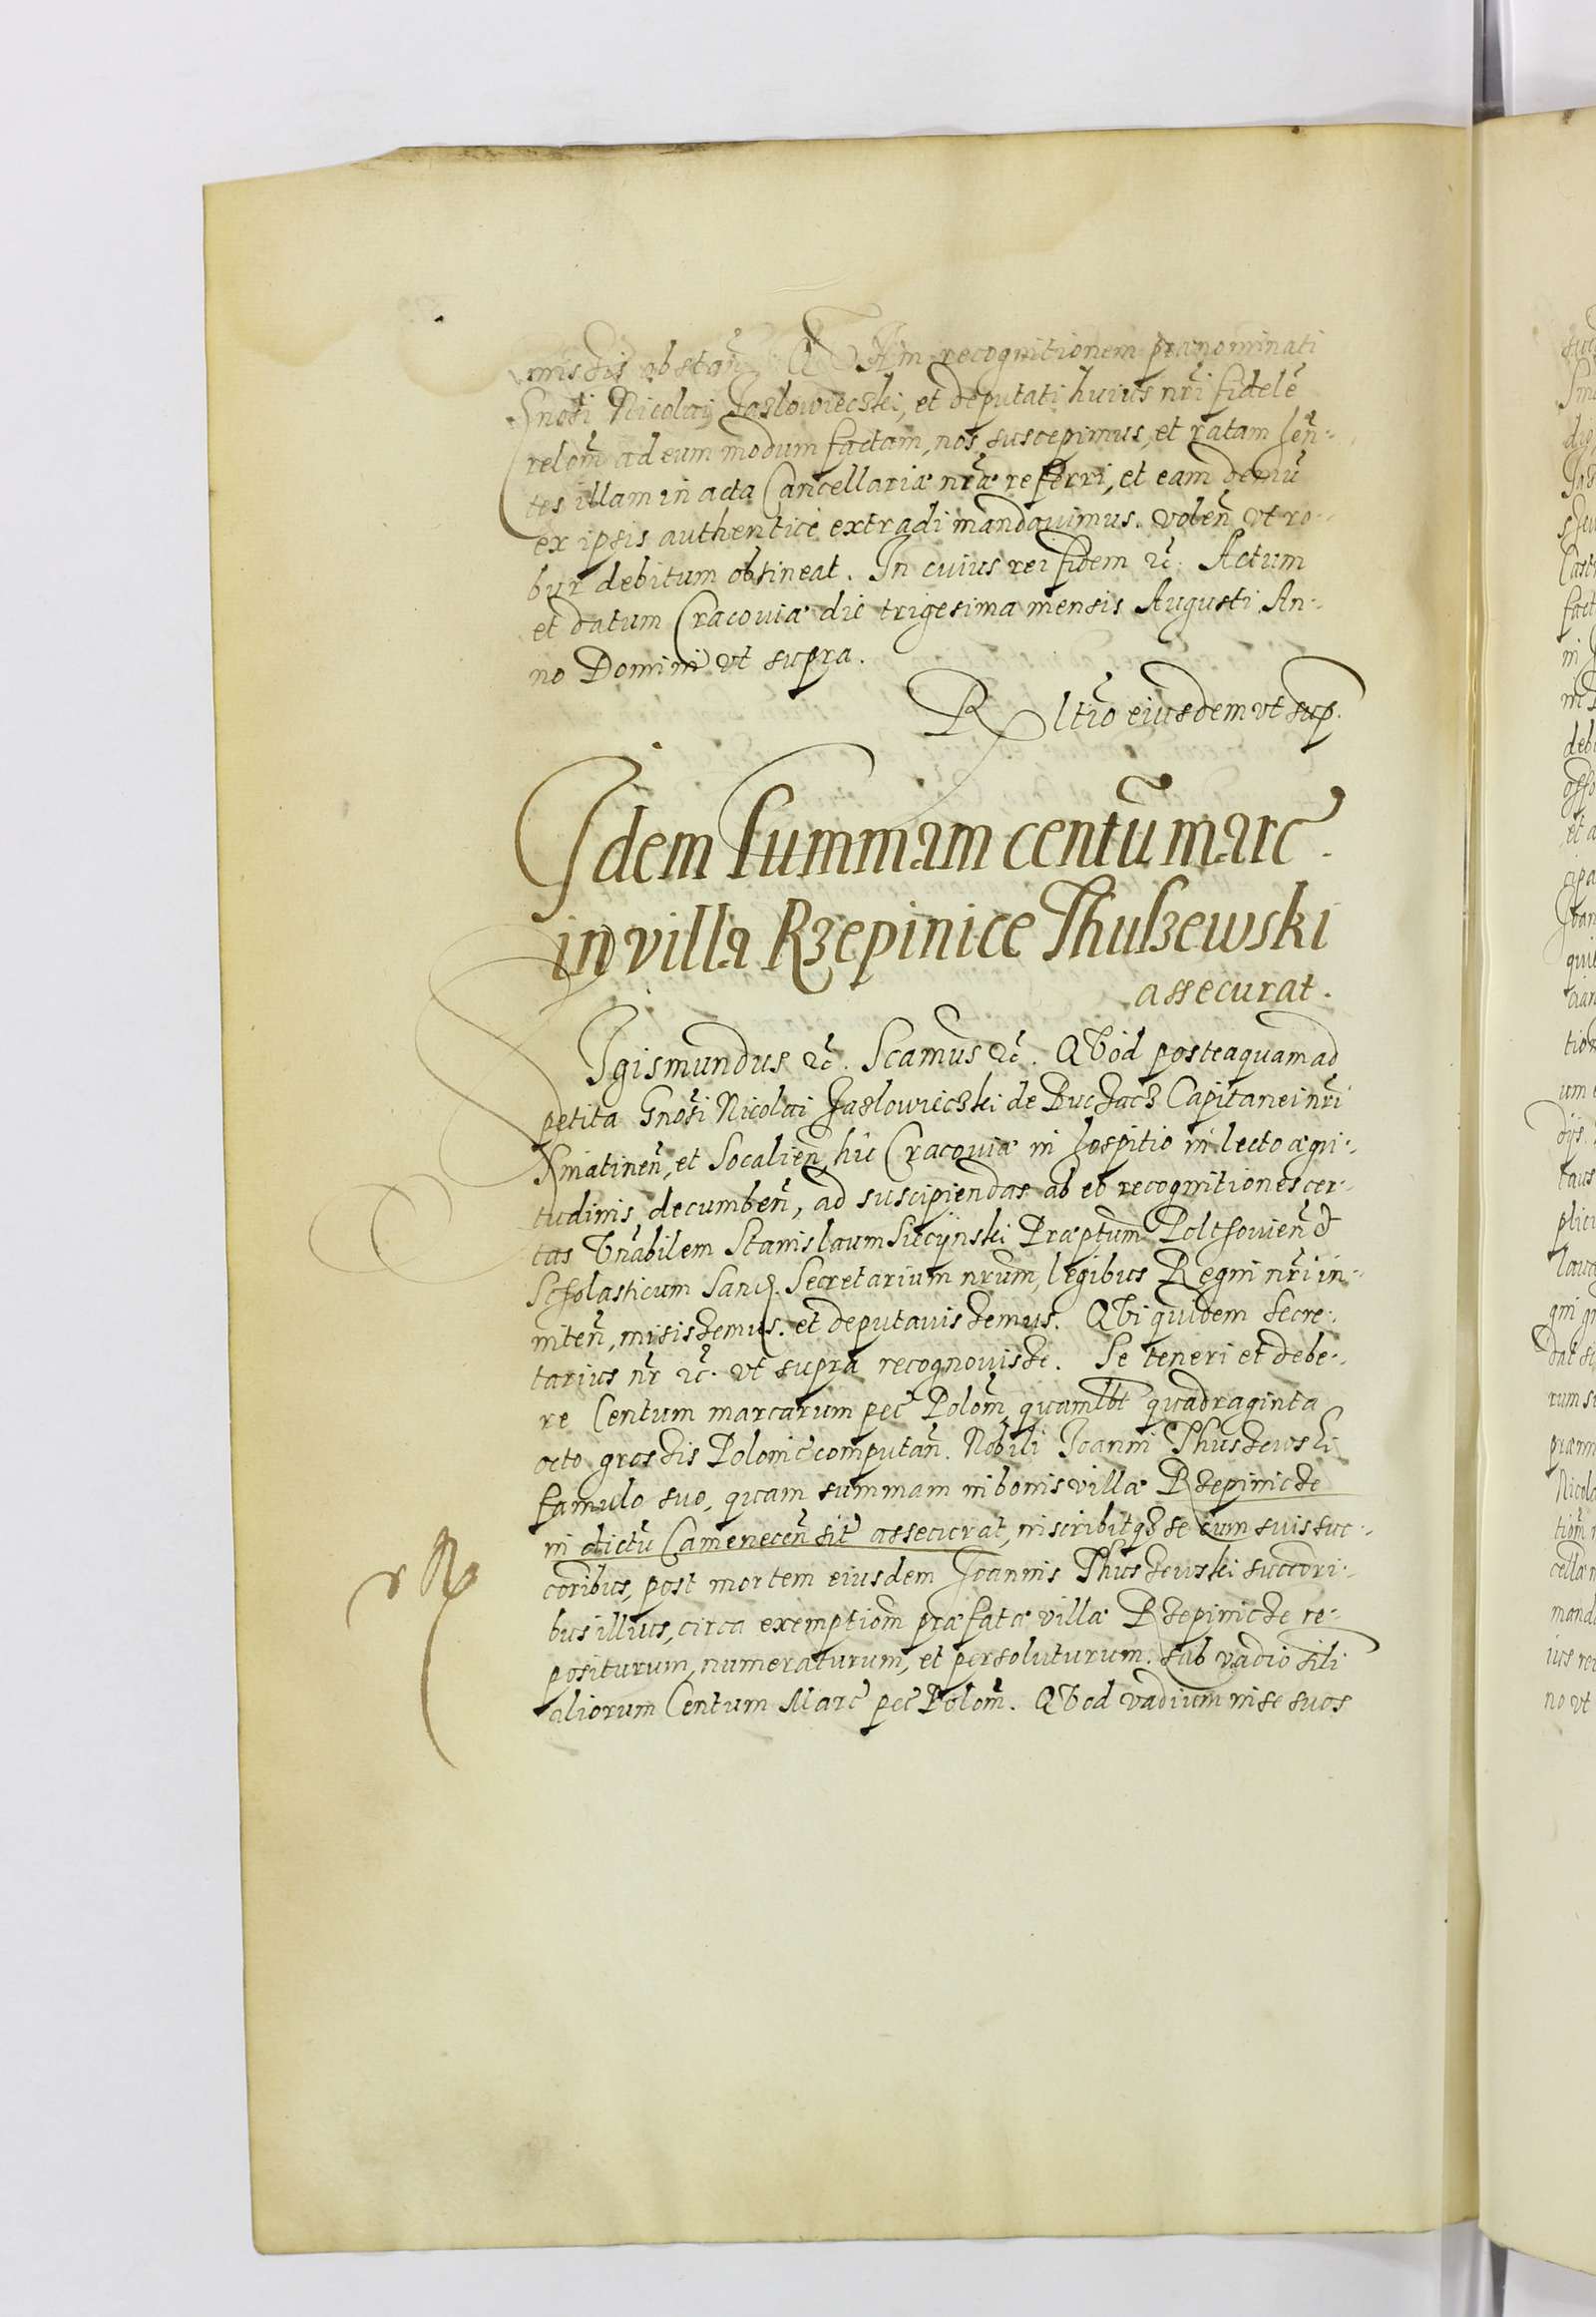 missis obstan̄. QVAm recognitionem prænominati
Gnosi Nicolai Jaslowieczki, et deputati huius nr̄i fidelē
relom̄ ad eum modum factam, nos suscepimus, et ratam hen̄-
tes illam in acta Cancellariæ nr̄æ referri, et eam demū
ex ipsis authenticè extradi mandavimus. volen̄ vt ro-
bur debitum obtineat. In cuius rei fidem ꝛc̄. Actum
et datum Cracoviæ die trigesima mensis Augusti An-
no Domini vt supra.
R ltio eiusdem vt sup.
Idem summam centū marc̄.
in villa Rzepinice Thulzewski
assecurat.
SIgismundus ꝛc̄. Scamus ꝛc̄. QVòd posteaquam ad
petita Gnosi Nicolai Jaslowieczki de Buczacz Capitanei nr̄i
Sniatinen̄, et Socalien̄, hìc Cracoviæ in hospitio in lecto ægri-
tudinis decumben̄, ad suscipiendas ab eo recognitiones cer-
tas Vn̄abilem Stanislaum Siecijnski Præptum Polthovien̄ &
Scholasticum San. Secretarium nr̄um, legibus Regni nr̄i in-
niten̄, misissemus. et deputavissemus. QVi quidem Secre-
tarius nr̄ ꝛc̄. vt supra recognovisse. Se teneri et debe-
re Centum marcarum pec̄ Polom̄, quamlbt quadraginta
octo grossis Polonic̄ computan̄. Nobili Joanni Thuszewski
famulo suo, quam summam in bonis villæ Rzepinicze
in dictū Camenecen̄ sit̄ assecurat, inscribitqꝫ se cum suis suc-
coribus, post mortem eiusdem Joannis Thuszewski succori-
bus illius, circa exemptiom̄ præfatæ villæ Rzepinicze re-
positurum, numeraturum, et persoluturum. sub vadio sili
aliorum Centum Marc̄ pec̄ Polom̄. QVod vadium in se suos